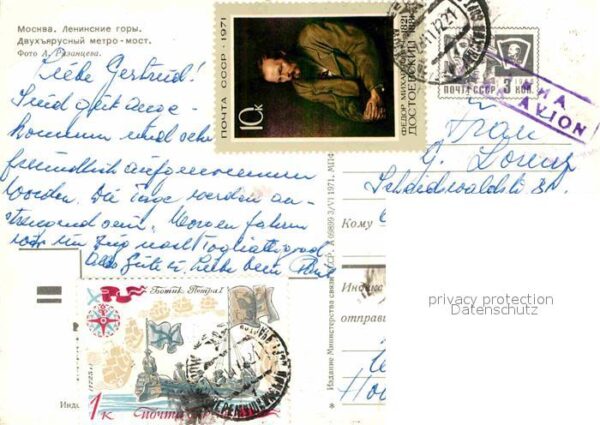 Москва. Ленинские горы.
Двухъярусный метро-мост.
Фото А. Рязанцева.
Liebe Gertrud!
Sind gut ange-
kommen und sehr
freundlich aufgenommen
worden. Die Tage werden an-
strengend sein. Morgen fahren
wir im Zug nach Togliattigrad
Alles Gute u. Liebe Dein
ПОЧТА СССР · 1971
10к
ФЕДОР МИХАЙЛОВИЧ
ДОСТОЕВСКИЙ
1821
1881
ПОЧТА СССР
3 КОП.
AVION
Frau
G. Lorenz
Кому
Индекс
отправи
А 09899 3/VI 1971.
* Издание Министерства связи СССР.
privacy protection
Datenschutz
Ботик Петра I
1к
почта
Инде